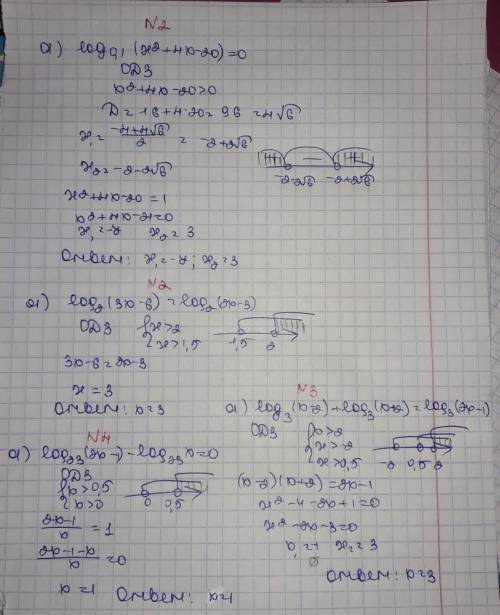 N2
а) log₀,₁ (x²+4x-20)=0
ОДЗ
x²+4x-20>0
D=16+4·20=96=4√6
x₁=(-4+4√6)/2 = -2+2√6
x₂=-2-2√6
-2-2√6 -2+2√6
x²+4x-20=1
x²+4x-21=0
x₁=-7 x₂=3
Ответ: x₁=-7; x₂=3
N2
а) log₂(3x-6)=log₂(2x-3)
ОДЗ {x>2
{x>1,5
1,5 2
3x-6=2x-3
x=3
Ответ: x=3
N3
а) log₃(x-2)+log₃(x+2)=log₃(2x-1)
ОДЗ {x>2
{x>-2
{x>0,5
-2 0,5 2
(x-2)(x+2)=2x-1
x²-4-2x+1=0
x²-2x-3=0
x₁=-1 x₂=3
∅
Ответ: x=3
N4
а) log₂₃(2x-1)-log₂₃x=0
ОДЗ
{x>0,5
{x>0
0 0,5
(2x-1)/x=1
(2x-1-x)/x=0
x=1 Ответ: x=1